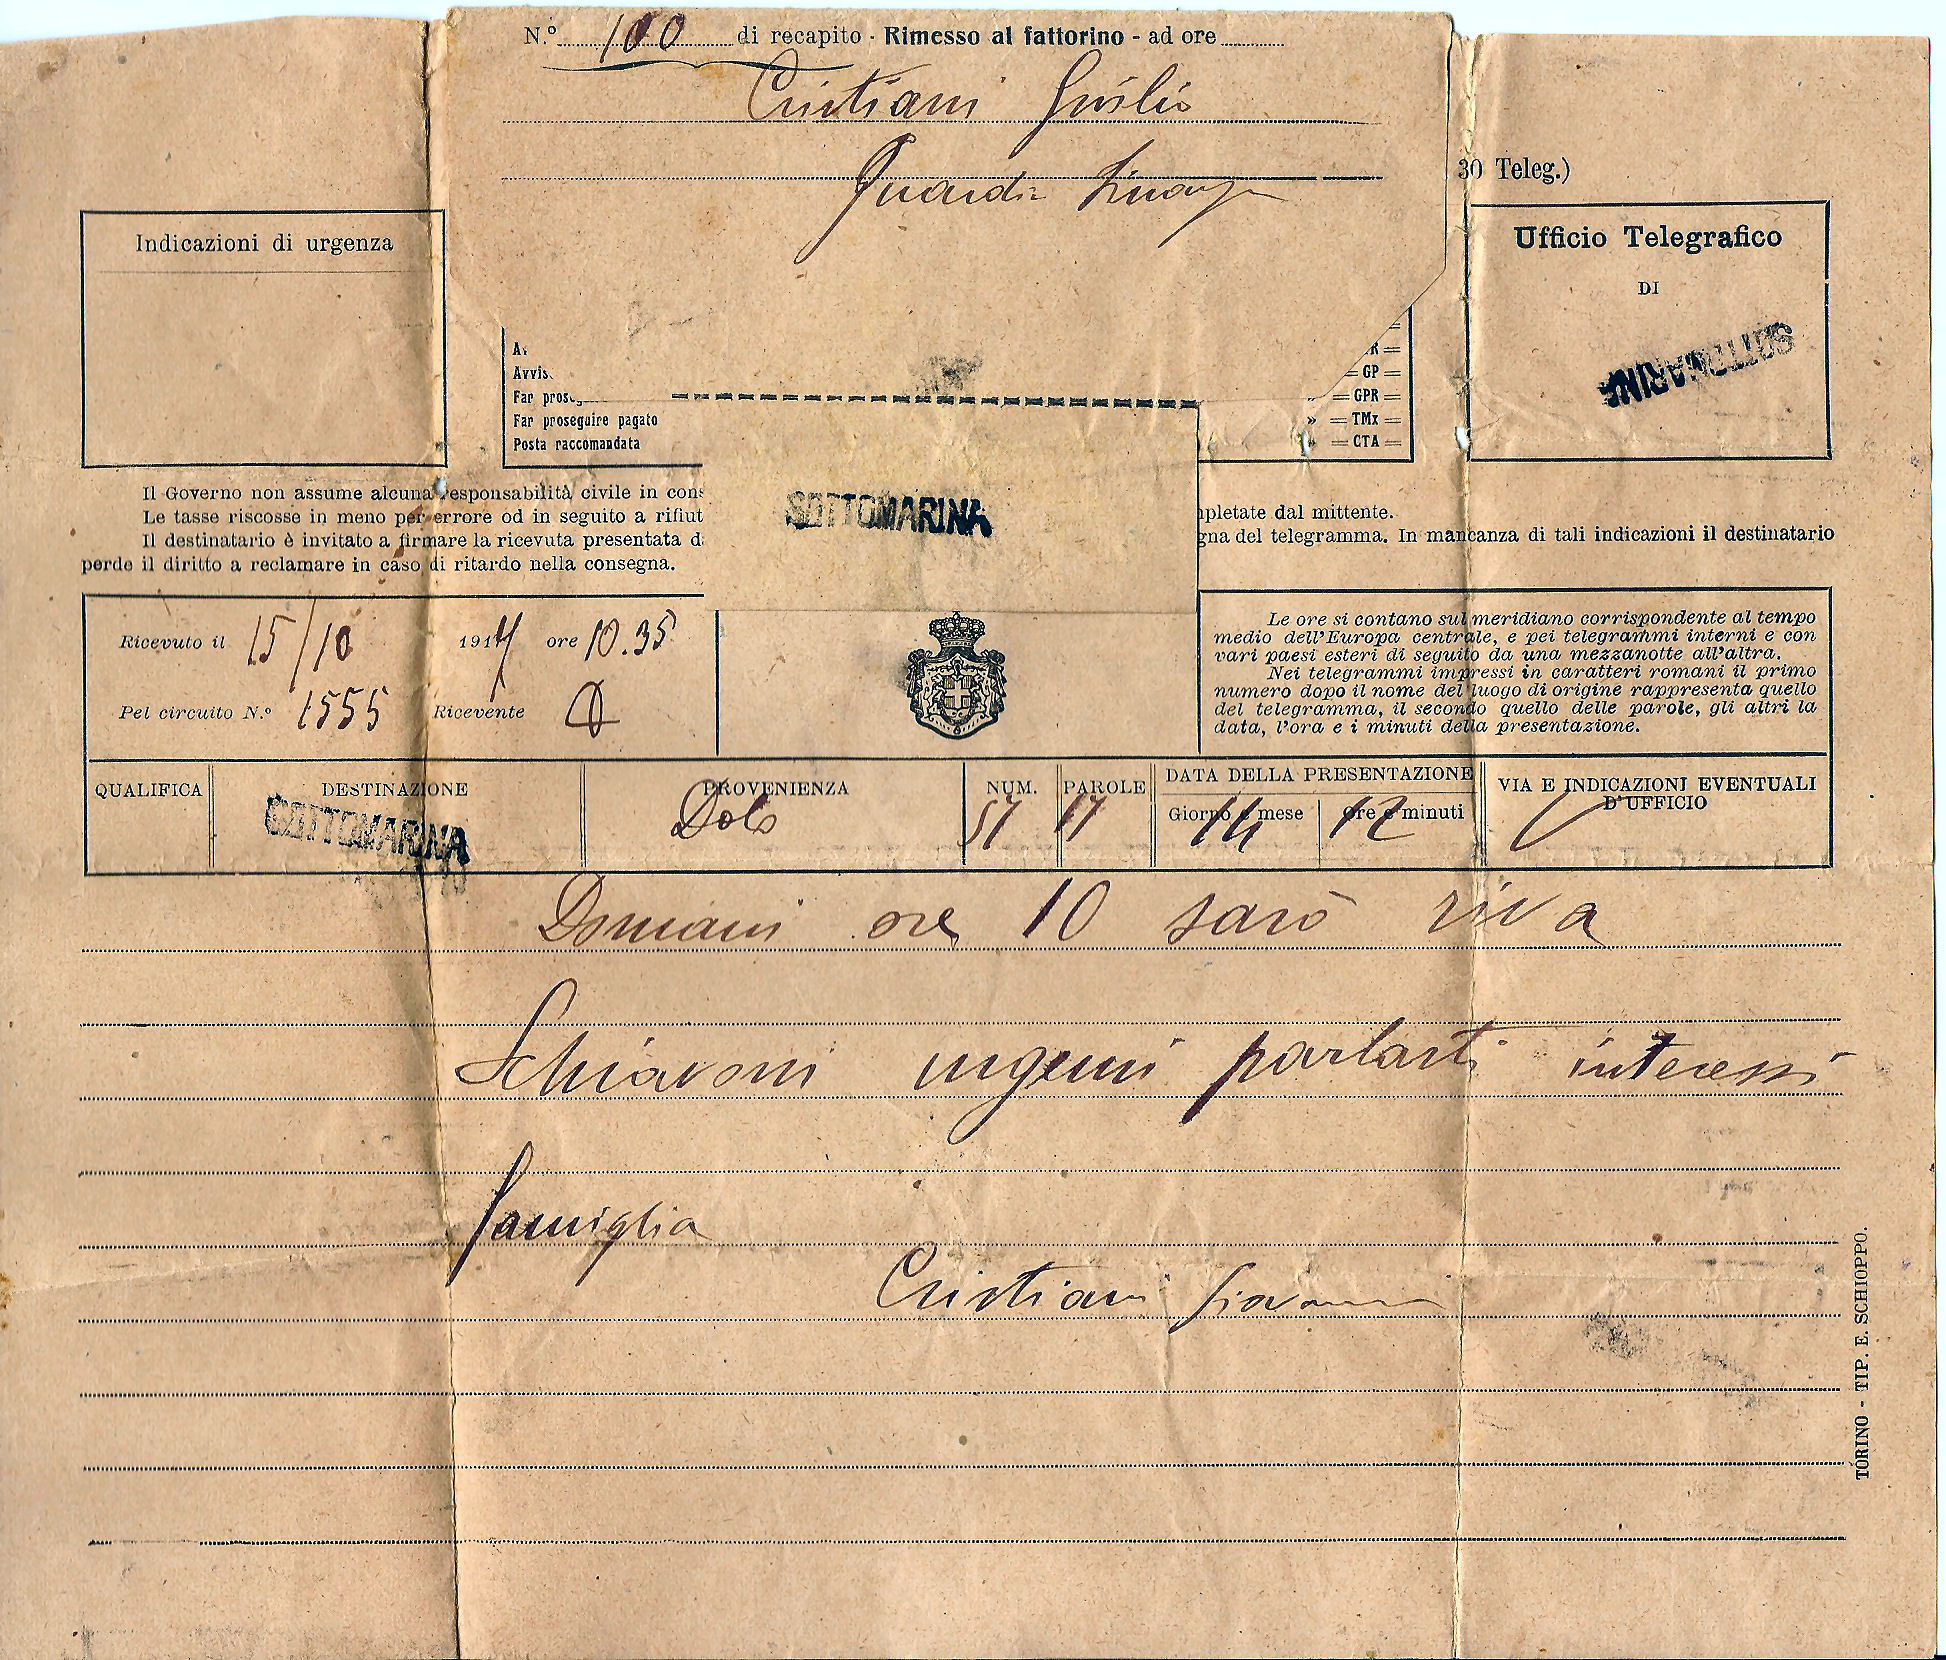 N.º 100 di recapito - Rimesso al fattorino - ad ore
Cristiani Giulio
Guardia Finanza
30 Teleg.)
Indicazioni di urgenza
Ufficio Telegrafico
DI
SOTTOMARINA
R =
Avvis
= GP =
Far proseg
= GPR =
Far proseguire pagato
» = TMx =
Posta raccomandata
» = CTA =
SOTTOMARINA
Il Governo non assume alcuna responsabilità civile in cons
Le tasse riscosse in meno per errore od in seguito a rifiut
mpletate dal mittente.
Il destinatario è invitato a firmare la ricevuta presentata d
gna del telegramma. In mancanza di tali indicazioni il destinatario
perde il diritto a reclamare in caso di ritardo nella consegna.
Ricevuto il 15/10 1914 ore 10.35
Pel circuito N.º 1555 Ricevente
Le ore si contano sul meridiano corrispondente al tempo
medio dell'Europa centrale, e pei telegrammi interni e con
vari paesi esteri di seguito da una mezzanotte all'altra.
Nei telegrammi impressi in caratteri romani il primo
numero dopo il nome del luogo di origine rappresenta quello
del telegramma, il secondo quello delle parole, gli altri la
data, l'ora e i minuti della presentazione.
QUALIFICA
DESTINAZIONE
SOTTOMARINA
PROVENIENZA
Dolo
NUM.
51
PAROLE
11
DATA DELLA PRESENTAZIONE
Giorno e mese
14
Ore e minuti
12
VIA E INDICAZIONI EVENTUALI
D'UFFICIO
Domani ore 10 sarò riva
Schiavoni urgemi parlarti interessi
famiglia
Cristiani Giovanni
TORINO - TIP. E. SCHIOPPO.